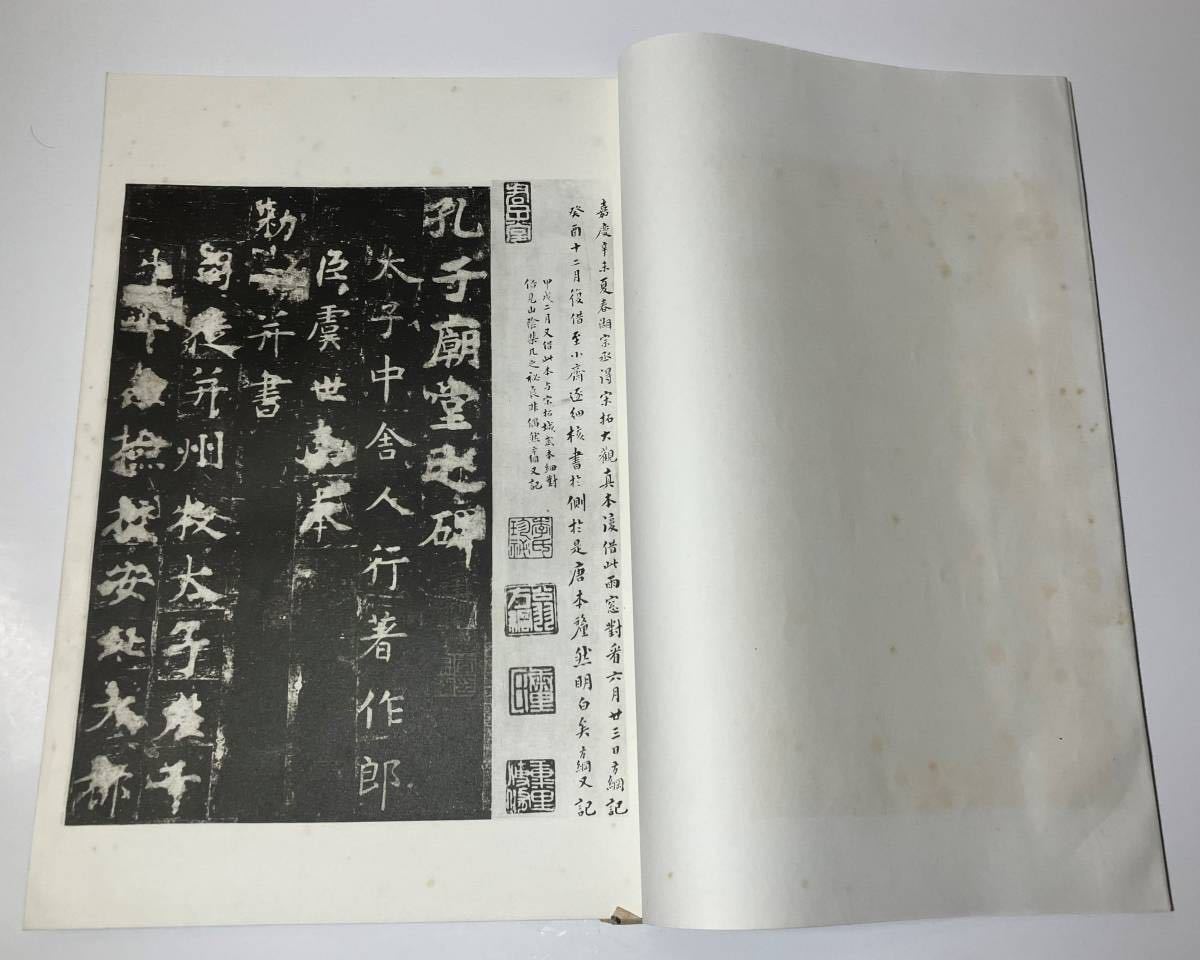 嘉慶辛未夏春湖宗丞得宋拓大觀真本復借此雨窓對看六月廿三日方綱記
癸酉十二月復借至小齋逐細核書於側於是唐本釐然明白矣方綱又記
甲戌二月又借此本与宋拓城武本細對
見山之秘良非偶然方綱又記
李氏珍祕
翁方綱
孔子廟堂之碑
太子中舍人行著作郎
臣虞世南奉
勅撰并書
司徒并州牧太子左千
牛率兼撿挍安北大都